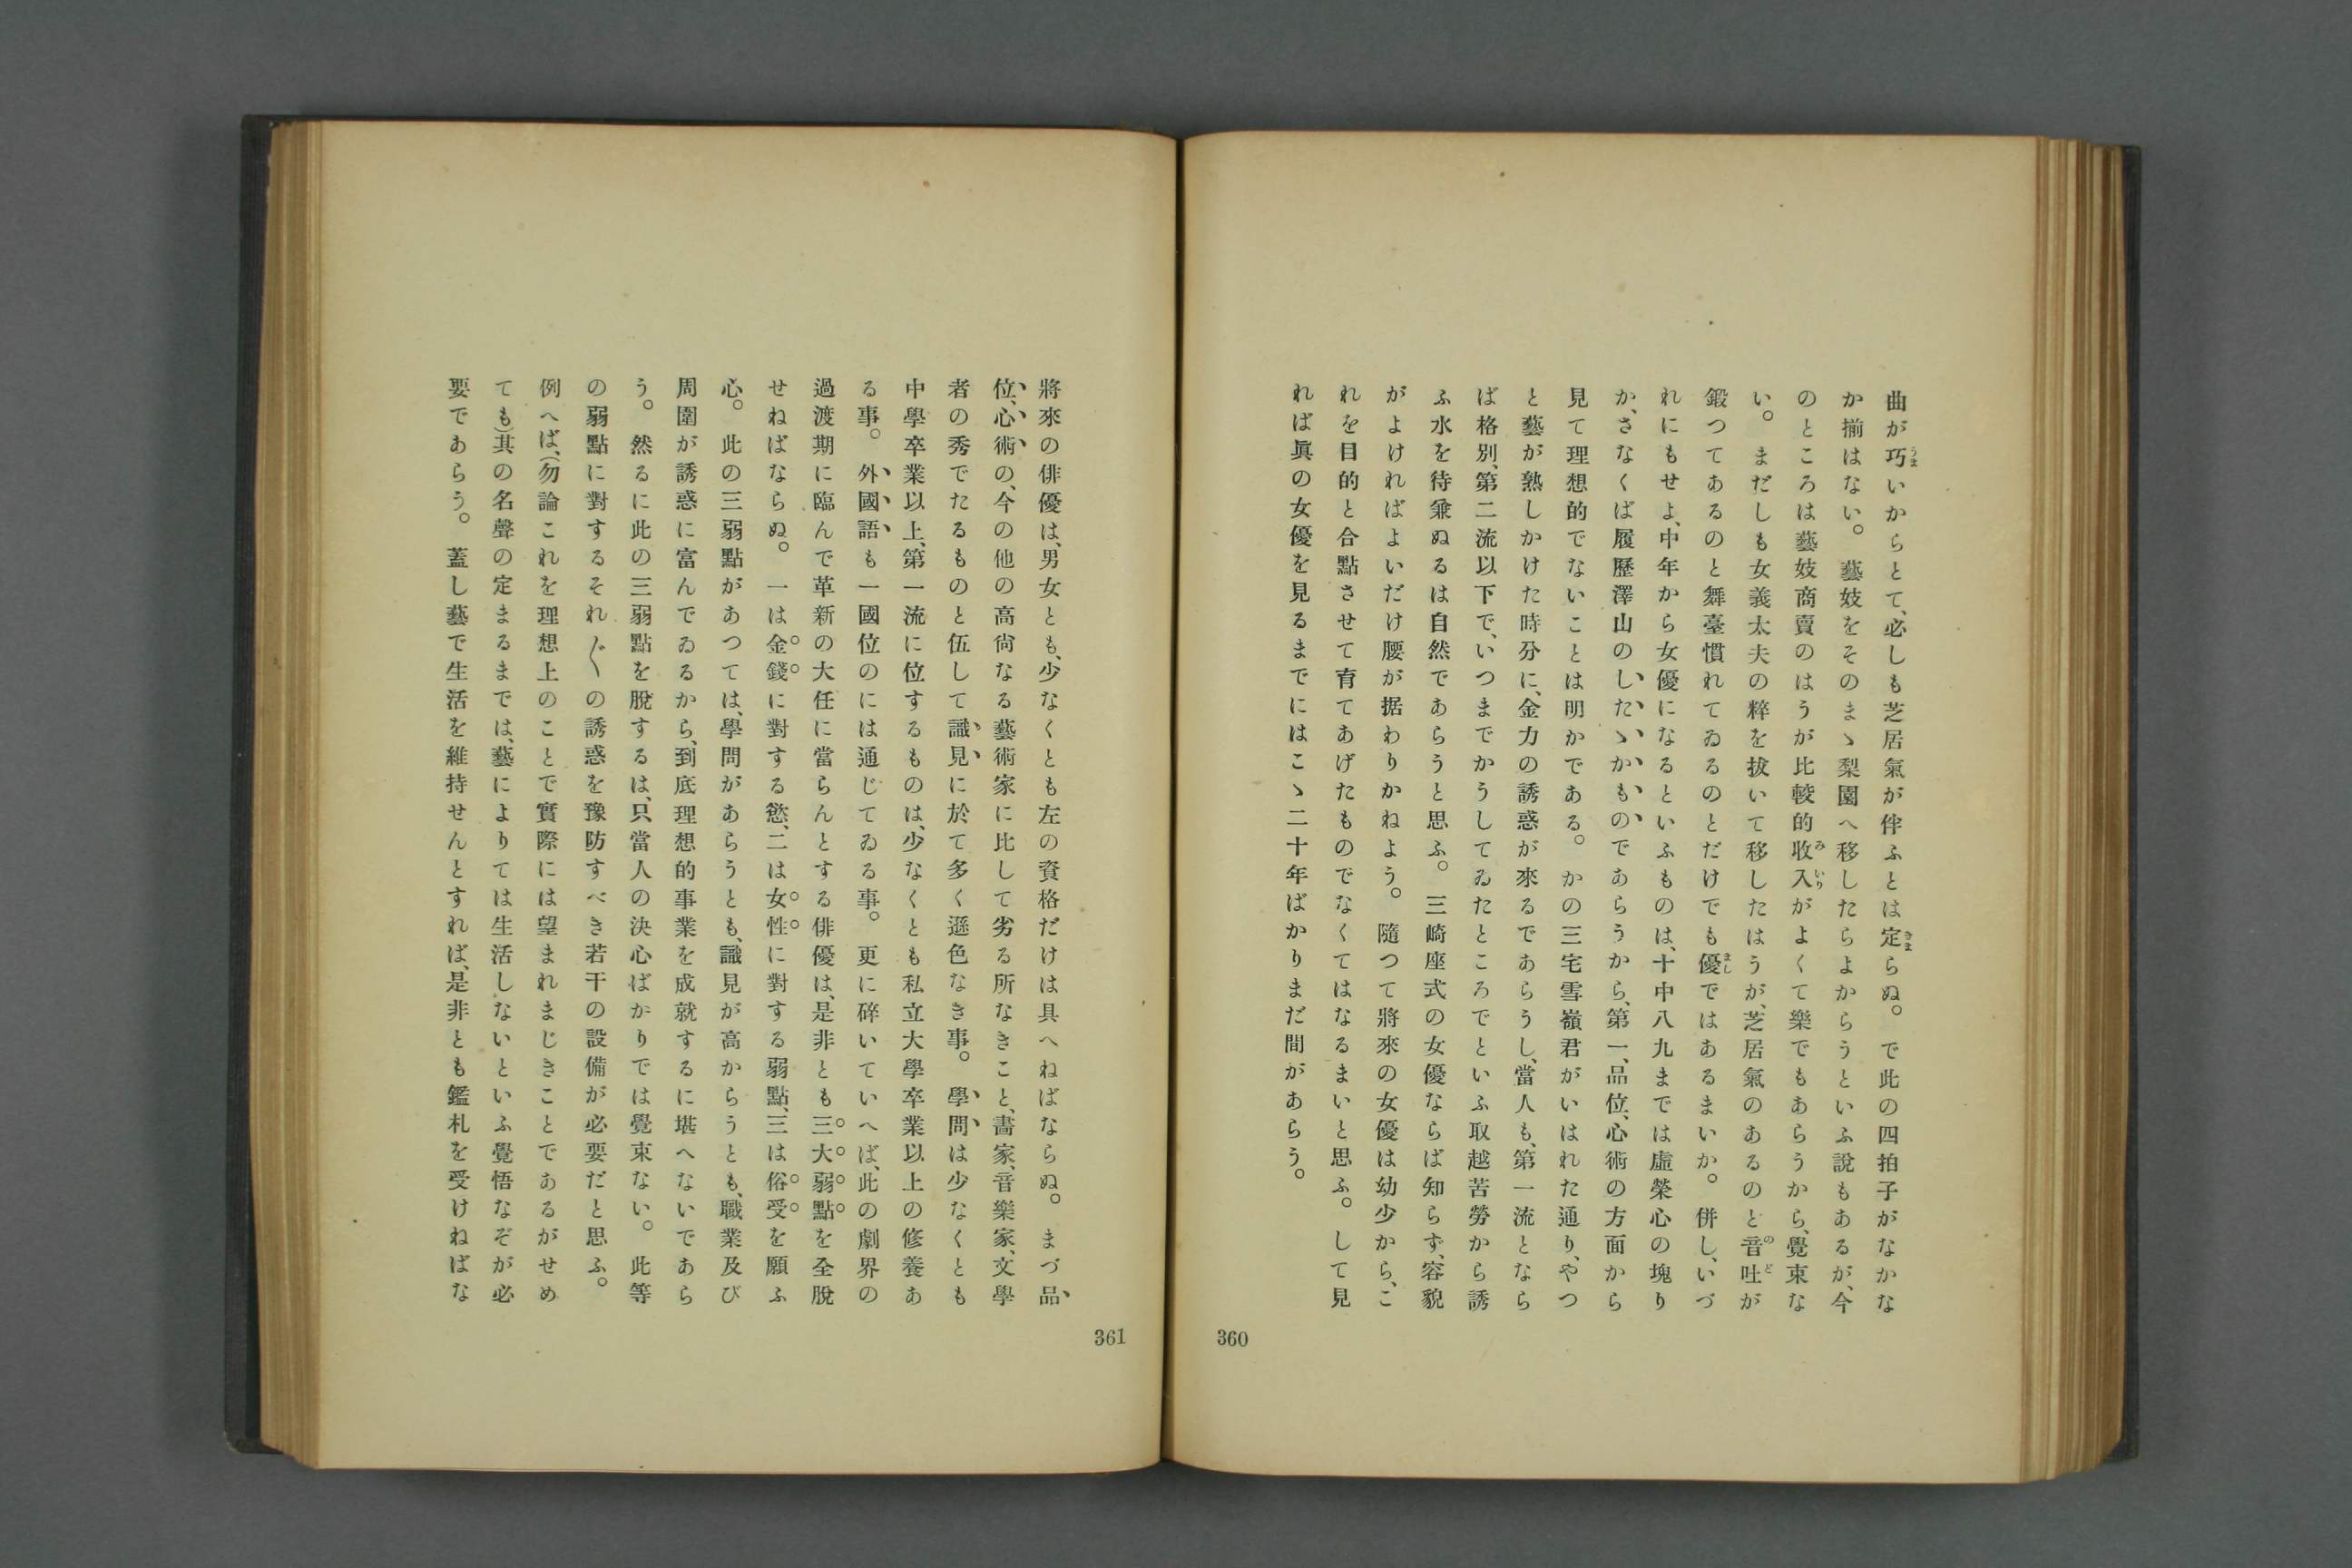 曲が巧いからとて、必しも芝居氣が伴ふとは定らぬ。で此の四拍子がなかな
か揃はない。藝妓をそのまゝ梨園へ移したらよからうといふ說もあるが、今
のところは藝妓商賣のはうが比較的收入がよくて樂でもあらうから、覺束な
い。まだしも女義太夫の粹を拔いて移したはうが、芝居氣のあるのと音吐が
鍛つてあるのと舞臺慣れてゐるのとだけでも優ではあるまいか。併し、いづ
れにもせよ、中年から女優になるといふものは、十中八九までは虛榮心の塊り
か、さなくば履歷澤山のしたゝかものであらうから、第一、品位、心術の方面から
見て理想的でないことは明かである。かの三宅雪嶺君がいはれた通り、やつ
と藝が熟しかけた時分に、金力の誘惑が來るであらうし、當人も、第一流となら
ば格別、第二流以下で、いつまでかうしてゐたところでといふ取越苦勞から誘
ふ水を待兼ぬるは自然であらうと思ふ。三崎座式の女優ならば知らず、容貌
がよければよいだけ腰が据わりかねよう。隨つて將來の女優は幼少から、こ
れを目的と合點させて育てあげたものでなくてはなるまいと思ふ。して見
れば眞の女優を見るまでにはこゝ二十年ばかりまだ間があらう。
360
將來の俳優は、男女とも、少なくとも左の資格だけは具へねばならぬ。まづ品
位、心術の、今の他の高尙なる藝術家に比して劣る所なきこと、畵家、音樂家、文學
者の秀でたるものと伍して識見に於て多く遜色なき事。學問は少なくとも
中學卒業以上、第一流に位するものは、少なくとも私立大學卒業以上の修養あ
る事。外國語も一國位のには通じてゐる事。更に碎いていへば、此の劇界の
過渡期に臨んで革新の大任に當らんとする俳優は、是非とも三大弱點を全脫
せねばならぬ。一は金錢に對する慾、二は女性に對する弱點、三は俗受を願ふ
心。此の三弱點があつては、學問があらうとも、識見が高からうとも、職業及び
周圍が誘惑に富んでゐるから、到底理想的事業を成就するに堪へないであら
う。然るに此の三弱點を脫するは、只當人の決心ばかりでは覺束ない。此等
の弱點に對するそれ〴〵の誘惑を豫防すべき若干の設備が必要だと思ふ。
例へば、(勿論これを理想上のことで實際には望まれまじきことであるがせめ
ても)其の名聲の定まるまでは、藝によりては生活しないといふ覺悟なぞが必
要であらう。蓋し藝で生活を維持せんとすれば、是非とも鑑札を受けねばな
361